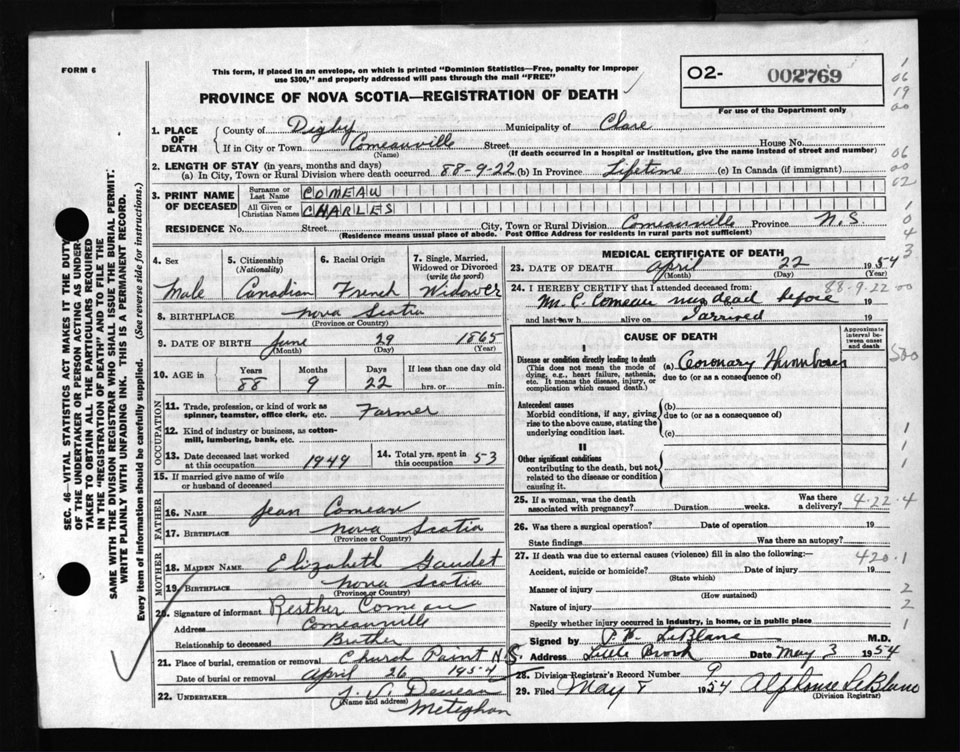 FORM 6
This form, if placed in an envelope, on which is printed "Dominion Statistics—Free, penalty for improper
use $300," and properly addressed will pass through the mail "FREE"
PROVINCE OF NOVA SCOTIA—REGISTRATION OF DEATH
O2- 002769
For use of the Department only
1. PLACE OF DEATH
County of Digby Municipality of Clare
If in City or Town Comeauville Street House No.
(Name) (If death occurred in a hospital or institution, give the name instead of street and number)
2. LENGTH OF STAY (in years, months and days)
(a) In City, Town or Rural Division where death occurred 88-9-22 (b) In Province Lifetime (c) In Canada (if immigrant)
3. PRINT NAME OF DECEASED
Surname or Last Name COMEAU
All Given or Christian Names CHARLES
RESIDENCE No. Street City, Town or Rural Division Comeauville Province N.S.
(Residence means usual place of abode. Post Office Address for residents in rural parts not sufficient)
4. Sex Male
5. Citizenship (Nationality) Canadian
6. Racial Origin French
7. Single, Married, Widowed or Divorced (write the word) Widower
8. BIRTHPLACE Nova Scotia
(Province or Country)
9. DATE OF BIRTH June 29 1865
(Month) (Day) (Year)
10. AGE in Years Months Days If less than one day old
88 9 22 hrs. or min.
OCCUPATION
11. Trade, profession, or kind of work as spinner, teamster, office clerk, etc. Farmer
12. Kind of industry or business, as cotton-mill, lumbering, bank, etc.
13. Date deceased last worked at this occupation 1949
14. Total yrs. spent in this occupation 53
15. If married give name of wife or husband of deceased
FATHER
16. NAME Jean Comeau
17. BIRTHPLACE Nova Scotia
(Province or Country)
MOTHER
18. MAIDEN NAME Elizabeth Gaudet
19. BIRTHPLACE Nova Scotia
(Province or Country)
20. Signature of informant Resther Comeau
Address Comeauville
Relationship to deceased Brother
21. Place of burial, cremation or removal Church Point N.S.
Date of burial or removal April 26 1954
22. UNDERTAKER
(Name and address)
Meteghan
MEDICAL CERTIFICATE OF DEATH
23. DATE OF DEATH April 22 1954
(Month) (Day) (Year)
24. I HEREBY CERTIFY that I attended deceased from: 88-9-22
Mr. C. Comeau was dead before 19
and last saw h alive on I arrived 19
CAUSE OF DEATH
Approximate interval between onset and death
I
Disease or condition directly leading to death
(This does not mean the mode of dying, e.g., heart failure, asthenia, etc. It means the disease, injury, or complication which caused death.)
(a) Coronary Thrombosis
due to (or as a consequence of)
Antecedent causes
Morbid conditions, if any, giving rise to the above cause, stating the underlying condition last.
(b)
due to (or as a consequence of)
(c)
II
Other significant conditions
contributing to the death, but not related to the disease or condition causing it.
25. If a woman, was the death associated with pregnancy? Duration weeks. Was there a delivery? 4-22-4
26. Was there a surgical operation? Date of operation 19
State findings Was there an autopsy?
27. If death was due to external causes (violence) fill in also the following:—
420.1
Accident, suicide or homicide? Date of injury 19
(State which)
Manner of injury
(How sustained)
Nature of injury
Specify whether injury occurred in industry, in home, or in public place
Signed by P.E. LeBlanc M.D.
Address Little Brook Date May 3 1954
28. Division Registrar's Record Number 9
29. Filed May 8 1954 Alphonse LeBlanc
(Division Registrar)
SEC. 46—VITAL STATISTICS ACT MAKES IT THE DUTY
OF THE UNDERTAKER OR PERSON ACTING AS UNDER-
TAKER TO OBTAIN ALL THE PARTICULARS REQUIRED
IN THE "REGISTRATION OF DEATH" AND TO FILE THE
SAME WITH THE DIVISION REGISTRAR WHO SHALL ISSUE THE BURIAL PERMIT.
WRITE PLAINLY WITH UNFADING INK. THIS IS A PERMANENT RECORD.
Every item of information should be carefully supplied. (See reverse side for instructions.)